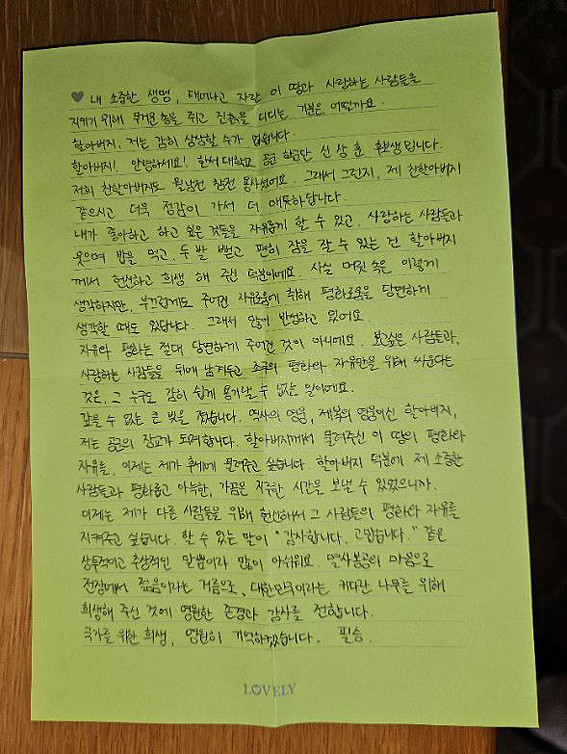 ♥ 내 소중한 생명, 태어나고 자란 이 땅과 사랑하는 사람들을
지키기 위해 무거운 총을 쥐고 전장을 디디는 기분은 어떨까요.
할아버지, 저는 감히 상상할 수가 없습니다.
할아버지! 안녕하세요! 한서대학교 공군 학군단 신상훈 후보생입니다.
저희 친할아버지도 월남전 참전 용사셨어요. 그래서 그런지, 제 친할아버지
같으시고 더욱 정감이 가서 더 애틋하답니다.
내가 좋아하고 하고 싶은 것들을 자유롭게 할 수 있고, 사랑하는 사람들과
웃으며 밥을 먹고, 두 발 뻗고 편히 잠을 잘 수 있는 건 할아버지
께서 헌신하고 희생 해 주신 덕분이에요. 사실 머릿 속은 이렇게
생각하지만, 부끄럽게도 주어진 자유로움에 취해 평화로움을 당연하게
생각할 때도 있답니다. 그래서 많이 반성하고 있어요.
자유와 평화는 절대 당연하게 주어진 것이 아니에요. 보고싶은 사람들과,
사랑하는 사람들을 뒤에 남겨두고 조국의 평화와 자유만을 위해 싸운다는
것은, 그 누구도 감히 쉽게 용기낼 수 없는 일이에요.
갚을 수 없는 큰 빚을 졌습니다. 역사의 영웅, 제복의 영웅이신 할아버지,
저는 공군의 장교가 되려합니다. 할아버지께서 물려주신 이 땅의 평화와
자유를, 이제는 제가 후세에 물려주고 싶습니다. 할아버지 덕분에 제 소중한
사람들과 평화롭고 아늑한, 가끔은 지루한 시간을 보낼 수 있었으니까.
이제는 제가 다른 사람들을 위해 헌신해서 그 사람들의 평화와 자유를
지켜주고 싶습니다. 할 수 있는 말이 "감사합니다, 고맙습니다." 같은
상투적이고 추상적인 말뿐이라 많이 아쉬워요. 멸사봉공의 마음으로
전장에서 젊음이라는 거름으로, 대한민국이라는 커다란 나무를 위해
희생해 주신 것에 영원한 존경과 감사를 전합니다.
국가를 위한 희생, 영원히 기억하겠습니다. 필승.
LOVELY